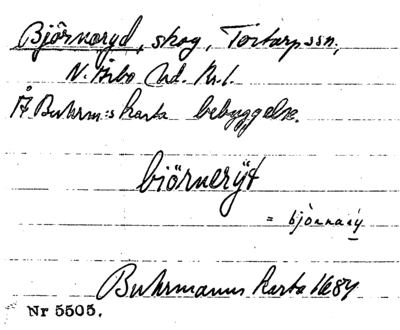 Björnaryd, skog, Tostarps sn.,
N. Åsbo hd. Kr. l.
Å Buhrm:s karta bebyggelse.
biörnerÿt
= bjòrnarý
Buhrmanns karta 1684
Nr 5505.